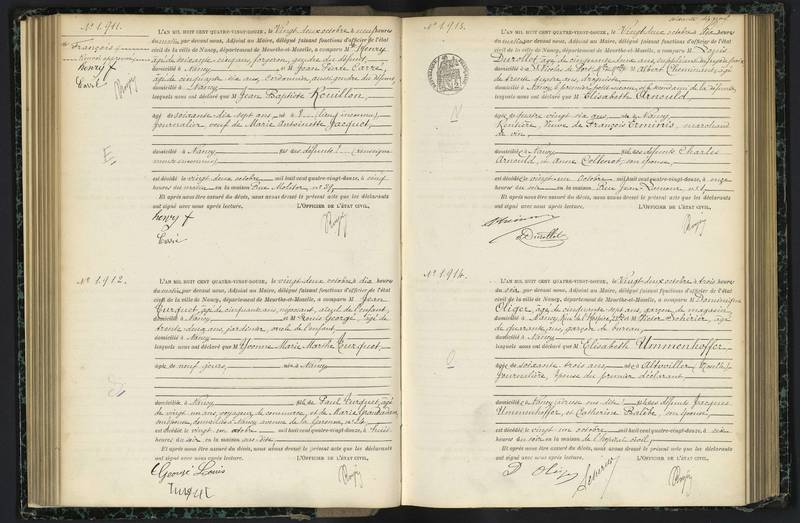 N° 1.911.
François
henry f
Carré
L'AN MIL HUIT CENT QUATRE-VINGT-DOUZE, le Vingt deux octobre à neuf heures
du matin, par devant nous, Adjoint au Maire, délégué faisant fonctions d'officier de l'état
civil de la ville de Nancy, département de Meurthe-et-Moselle, a comparu M henry
forgeron, gendre du défunt,
domicilié à Nancy et M Jean Pierre Carré,
âgé de cinquante six ans, cordonnier, aussi gendre du défunt,
domicilié à Nancy
lesquels nous ont déclaré que M Jean Baptiste Rouillon,
âgé de soixante dix sept ans, né à ? (lieu inconnu)
journalier, veuf de Marie Antoinette Jacquot,
domicilié à Nancy fils des défunts ! (renseigne
ments inconnus)
est décédé le vingt deux octobre mil huit cent quatre-vingt-douze, à cinq
heures du matin en la maison Rue Molitor n° 39,
Et après nous être assuré du décès, nous avons dressé le présent acte que les déclarants
ont signé avec nous après lecture. L'OFFICIER DE L'ÉTAT CIVIL,
henry f
Carré
N° 1.912.
L'AN MIL HUIT CENT QUATRE-VINGT-DOUZE, le vingt deux octobre dix heures
du matin, par devant nous, Adjoint au Maire, délégué faisant fonctions d'officier de l'état
civil de la ville de Nancy, département de Meurthe-et-Moselle, a comparu M Jean
Turquet, âgé de cinquante ans, négociant, aïeul de l'enfant,
domicilié à Nancy et M Louis George, âgé de
trente deux ans, jardinier, oncle de l'enfant,
domicilié à Nancy
lesquels nous ont déclaré que M Yvonne Marie Marthe Turquet,
âgée de neuf jours, née à Nancy
domiciliée à Nancy fille de Paul Turquet, âgé
de vingt un ans, voyageur de commerce, et de Marie
son épouse, domiciliés à Nancy avenue de la Garenne, n° 24
est décédée le vingt un octobre mil huit cent quatre-vingt-douze, à huit
heures du soir en la maison sus-dite
Et après nous être assuré du décès, nous avons dressé le présent acte que les déclarants
ont signé avec nous après lecture. L'OFFICIER DE L'ÉTAT CIVIL,
George Louis
Turquet
N° 1.913.
L'AN MIL HUIT CENT QUATRE-VINGT-DOUZE, le Vingt deux octobre à dix heures
du matin, par devant nous, Adjoint au Maire, délégué faisant fonctions d'officier de l'état
civil de la ville de Nancy, département de Meurthe-et-Moselle, a comparu M Louis
Durollet, âgé de cinquante deux ans,
domicilié à St Nicolas de Port et M Albert
de trente quatre ans, droguiste
domicilié à Nancy le premier petit neveu, et
lesquels nous ont déclaré que M Elisabeth Arnould,
âgée de quatre vingt dix ans née à Nancy
Rentière, Veuve de François marchand
de vin,
domiciliée à Nancy fille des défunts Charles
Arnould, et Anne Collenot, son épouse,
est décédée le vingt un Octobre mil huit cent quatre-vingt-douze, à onze
heures du soir en la maison Rue Jean Lamour n° 1,
Et après nous être assuré du décès, nous avons dressé le présent acte que les déclarants
ont signé avec nous après lecture. L'OFFICIER DE L'ÉTAT CIVIL,
Durollet
N° 1.914.
L'AN MIL HUIT CENT QUATRE-VINGT-DOUZE, le Vingt deux octobre à trois heures
du soir, par devant nous, Adjoint au Maire, délégué faisant fonctions d'officier de l'état
civil de la ville de Nancy, département de Meurthe-et-Moselle, a comparu M Dominique
Oliger, âgé de cinquante sept ans, garçon de magasin,
domicilié à Nancy et M Victor Scherier, âgé
de quarante ans, garçon de bureau,
domicilié à Nancy
lesquels nous ont déclaré que M Elisabeth Ummenhoffer
âgée de soixante trois ans, née à Altviller (Moselle)
Journalière, épouse du premier déclarant
domiciliée à Nancy fille des défunts Jacques
Ummenhoffer, et Catherine son épouse,
est décédée le vingt un octobre mil huit cent quatre-vingt-douze, à six
heures du soir en la maison de l'hôpital civil,
Et après nous être assuré du décès, nous avons dressé le présent acte que les déclarants
ont signé avec nous après lecture. L'OFFICIER DE L'ÉTAT CIVIL,
D Oliger